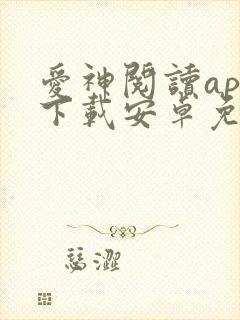 愛神閱讀ap
下載安卓免
瑟澀